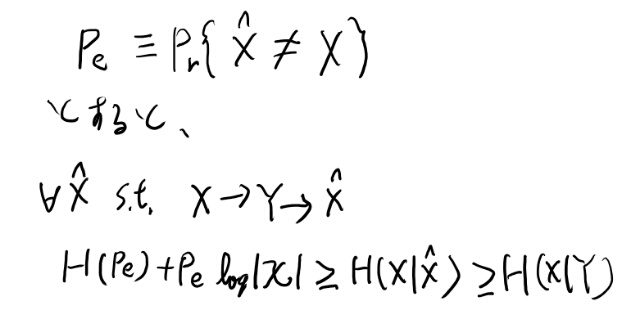 Pₑ ≡ Pᵣ{X̂ ≠ X}
とすると、
∀X̂ s.t. X→Y→X̂
H(Pₑ)+Pₑ log|𝒳| ≥ H(X|X̂) ≥ H(X|Y)